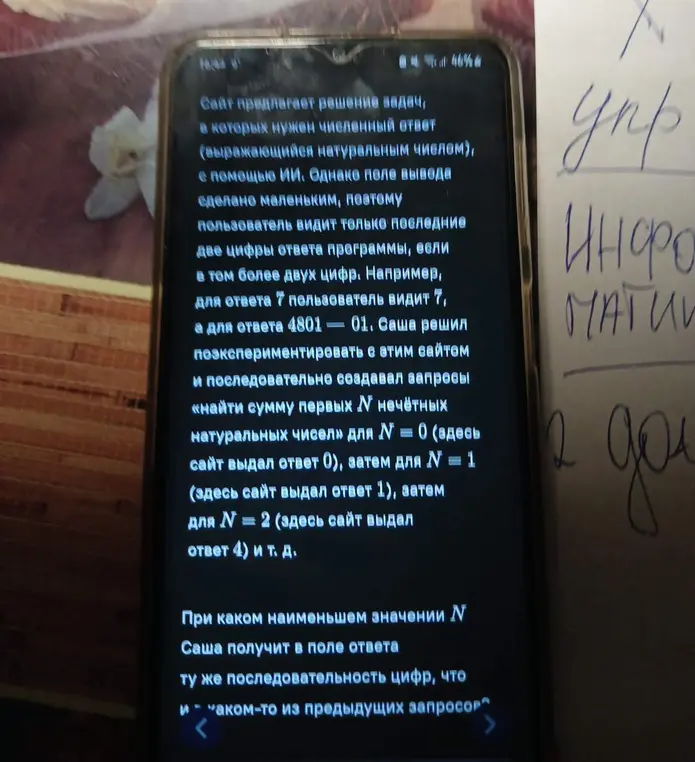 46%
Сайт предлагает решение задач,
в которых нужен численный ответ
(выражающийся натуральным числом),
с помощью ИИ. Однако поле вывода
сделано маленьким, поэтому
пользователь видит только последние
две цифры ответа программы, если
в том более двух цифр. Например,
для ответа 7 пользователь видит 7,
а для ответа 4801 — 01. Саша решил
поэкспериментировать с этим сайтом
и последовательно создавал запросы
«найти сумму первых N нечётных
натуральных чисел» для N = 0 (здесь
сайт выдал ответ 0), затем для N = 1
(здесь сайт выдал ответ 1), затем
для N = 2 (здесь сайт выдал
ответ 4) и т. д.
При каком наименьшем значении N
Саша получит в поле ответа
ту же последовательность цифр, что
и в каком-то из предыдущих запросов?
упр
ИНФО
МАТИ
2